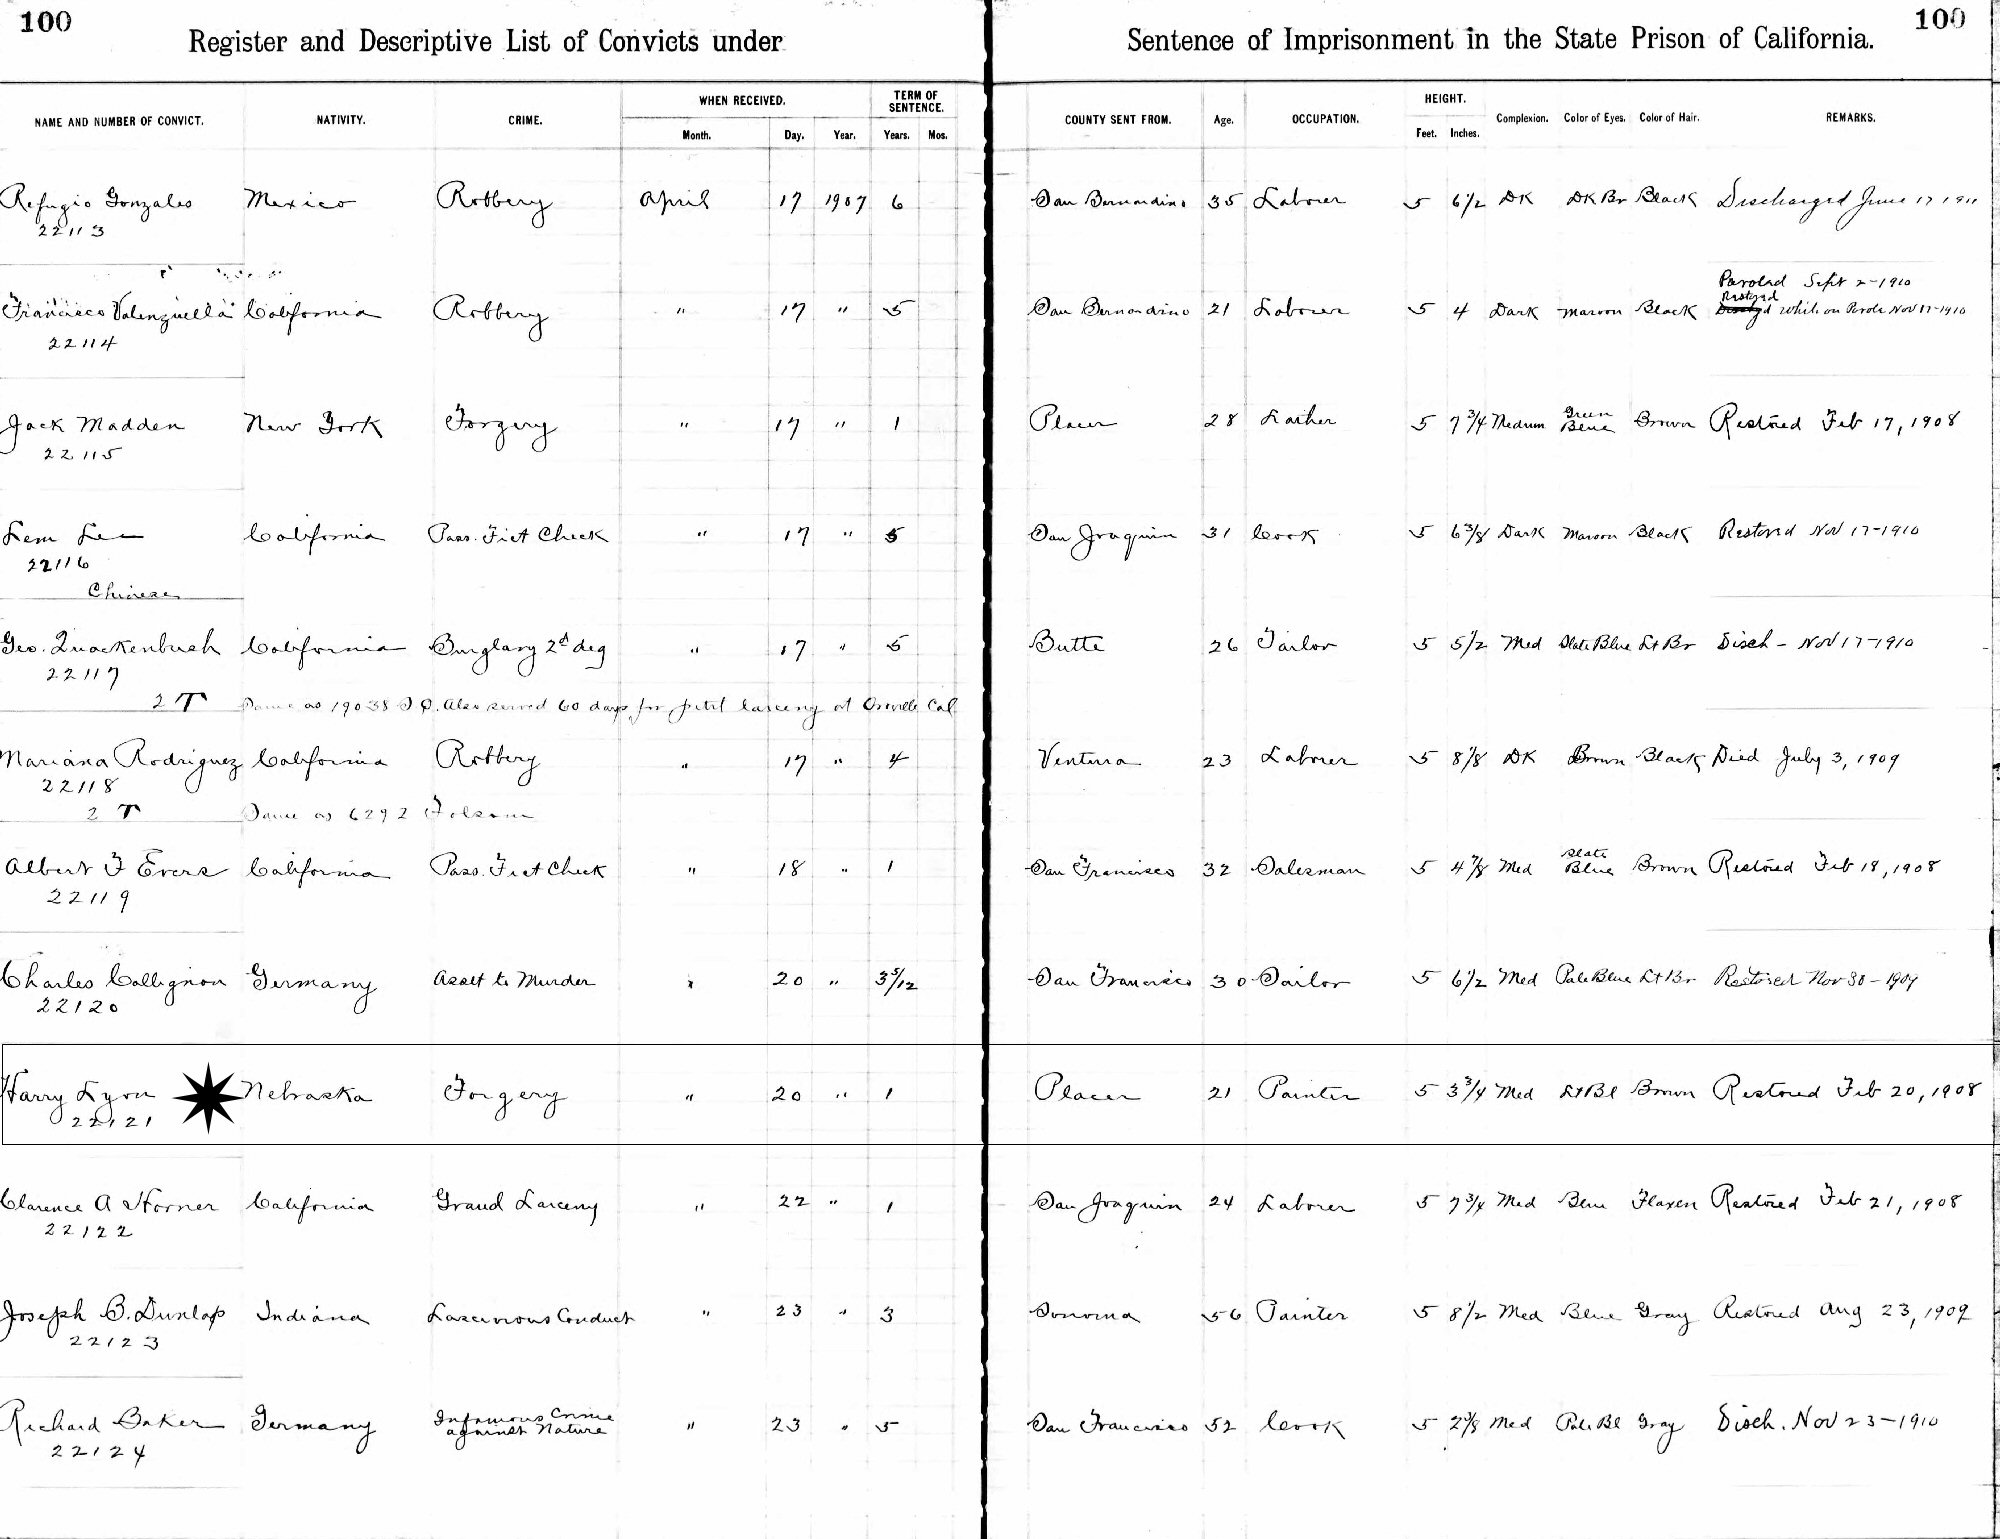 100
100
Register and Descriptive List of Convicts under
Sentence of Imprisonment in the State Prison of California.
NAME AND NUMBER OF CONVICT. NATIVITY. CRIME. WHEN RECEIVED. TERM OF SENTENCE. COUNTY SENT FROM. Age. OCCUPATION. HEIGHT. Complexion. Color of Eyes. Color of Hair. REMARKS.
Month. Day. Year. Years. Mos. Feet. Inches.
Refugio Gonzales Mexico Robbery April 17 1907 6 San Bernardino 35 Laborer 5 6 1/2 DK DK Br Black Discharged June 17 1911
22113
Parolad Sept 2-1910
Restored
Francisco Valenzuella California Robbery " 17 " 5 San Bernardino 21 Laborer 5 4 Dark Maroon Black while on Parole Nov 17-1910
22114
Jack Madden New York Forgery " 17 " 1 Placer 28 Lather 5 7 3/4 Medium Green Blue Brown Restored Feb 17, 1908
22115
Lem Lee California Pass. Fict Check " 17 " 5 San Joaquin 31 Cook 5 6 3/8 Dark Maroon Black Restored Nov 17-1910
22116
Chinese
Geo. Quackenbush California Burglary 2d deg " 17 " 5 Butte 26 Tailor 5 5 1/2 Med Slate Blue Lt Br Disch - Nov 17-1910
22117
2 T Same as 19038 S Q. Also served 60 days for petit larceny at Oroville Cal
Mariana Rodriguez California Robbery " 17 " 4 Ventura 23 Laborer 5 8 1/8 DK Brown Black Died July 3, 1909
22118
2 T Same as 6292 Folsom
Albert F Evers California Pass. Fict Check " 18 " 1 San Francisco 32 Salesman 5 4 7/8 Med Slate Blue Brown Restored Feb 18, 1908
22119
Charles Collignon Germany Asslt to Murder " 20 " 3 5/12 San Francisco 30 Tailor 5 6 1/2 Med Pale Blue Lt Br Restored Nov 30-1909
22120
Harry Lyon Nebraska Forgery " 20 " 1 Placer 21 Painter 5 3 3/4 Med Lt Bl Brown Restored Feb 20, 1908
22121
Clarence A Horner California Grand Larceny " 22 " 1 San Joaquin 24 Laborer 5 7 3/4 Med Blue Flaxen Restored Feb 21, 1908
22122
Joseph B. Dunlap Indiana Lascivious Conduct " 23 " 3 Sonoma 56 Painter 5 8 1/2 Med Blue Gray Restored Aug 23, 1909
22123
Richard Baker Germany Infamous Crime against Nature " 23 " 5 San Francisco 52 Cook 5 2 3/8 Med Pale Bl Gray Disch. Nov 23-1910
22124